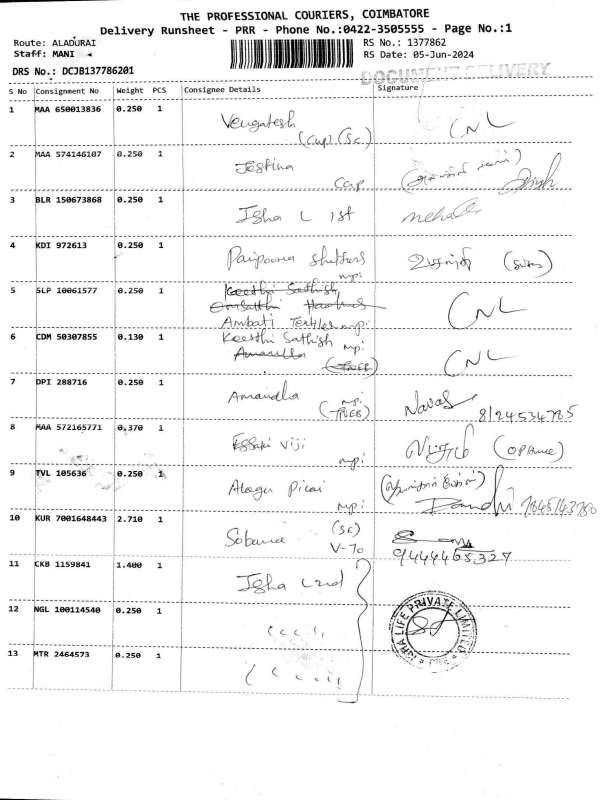 THE PROFESSIONAL COURIERS, COIMBATORE
Delivery Runsheet - PRR - Phone No.:0422-3505555 - Page No.:1
Route: ALADURAI
Staff: MANI
RS No.: 1377862
RS Date: 05-Jun-2024
DRS No.: DCJB137786201
DOCUMENT DELIVERY
S No Consignment No Weight PCS Consignee Details Signature
1 MAA 650013836 0.250 1 Vengatesh CNL
(Cup) (Sc)
2 MAA 574146107 0.250 1 Jestina
Cup
3 BLR 150673868 0.250 1 Isha L 1st
4 KDI 972613 0.250 1
mpi
5 SLP 10061577 0.250 1 Keerthi Sathish CNL
Ambati Textiles mpi
6 CDM 50307855 0.130 1 Keerthi Sathish mpi CNL
(TNEB)
7 DPI 288716 0.250 1 Amandla mpi Navas
(TNEB) 8124534785
8 MAA 572165771 0.370 1 Essaki Viji
mpi
9 TVL 105636 0.250 1
mpi
10 KUR 7001648443 2.710 1 Sobana (SC)
V-70 9444465327
11 CKB 1159841 1.400 1 Isha L 2nd
12 NGL 100114540 0.250 1
13 MTR 2464573 0.250 1
ISHA LIFE PRIVATE LIMITED